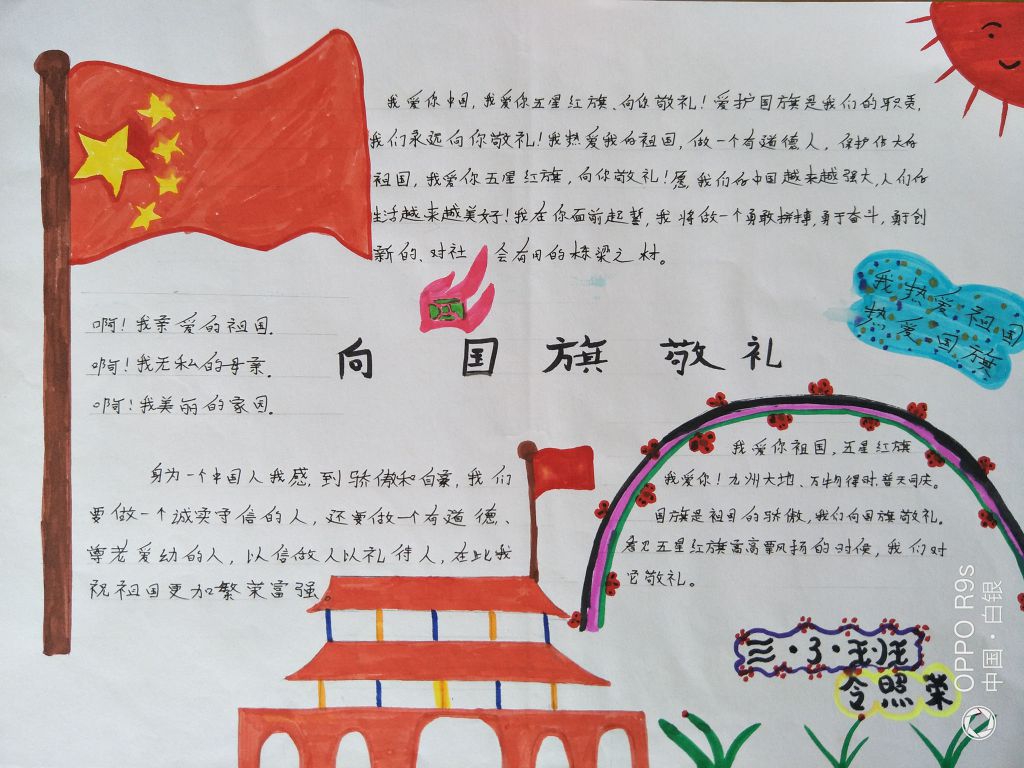 我爱你中国,我爱你五星红旗、向你敬礼!爱护国旗是我们的职责,
我们永远向你敬礼!我热爱我的祖国,做一个有道德人,保护伟大的
祖国,我爱你五星红旗,向你敬礼!愿,我们的中国越来越强大,人们的
生活越来越美好!我在你面前起誓,我将做一个勇敢拼搏,勇于奋斗,勇于创
新的、对社会有用的栋梁之材。
啊!我亲爱的祖国.
啊!我无私的母亲.
啊!我美丽的家园.
向国旗敬礼
我热爱祖国
热爱国旗
身为一个中国人我感,到骄傲和自豪,我们
要做一个诚实守信的人,还要做一个有道德、
尊老爱幼的人,以信做人以礼待人,在此我
祝祖国更加繁荣富强
我爱你祖国,五星红旗
我爱你!九州大地、万物得时,普天同庆。
国旗是祖国的骄傲,我们向国旗敬礼。
看见五星红旗高高飘扬的时候,我们对
它敬礼。
三·3·班
令照荣
OPPO R9s
中国·白银